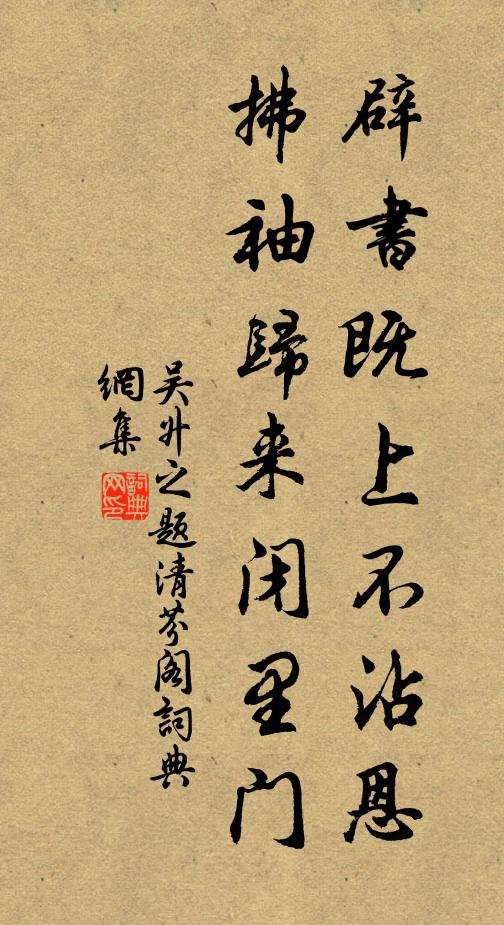 辟書既上不沾恩
拂袖歸来闭里门
吴升之题清芬阁詞典
網集
詞典網印